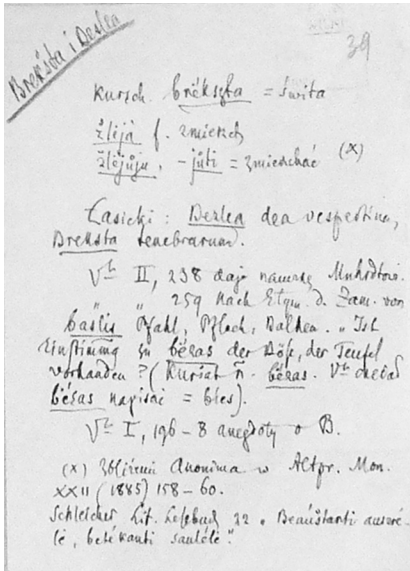 Brekšta i Bezlea
39
Kursch. brėkszta = świta
žlijà f. zmierzch
žlėjůju, -jůti = zmierzchać (x)
Łasicki : Bezlea dea vespertina,
Breksta tenebrarum.
V<sup>th</sup> II, 238 daje nawaszę
" " 259 nach Etym. d. Zem. von
baslis Pfahl, Pflock, Balken. „Ist
Einstimmg zu bėsas der Böse, der Teufel
vorhanden? (Kuršat ñ. bėsas. V<sup>th</sup> chciał
bėsas napisać = bies).
V<sup>th</sup> I, 196-8 anegdoty o B.
(x) Anonima w Altpr. Mon.
XXII (1885) 158-60.
Schleicher Lit. Lesebuch 32 „Beaúštanti auszrė-
lė, betėkanti saulėlė".